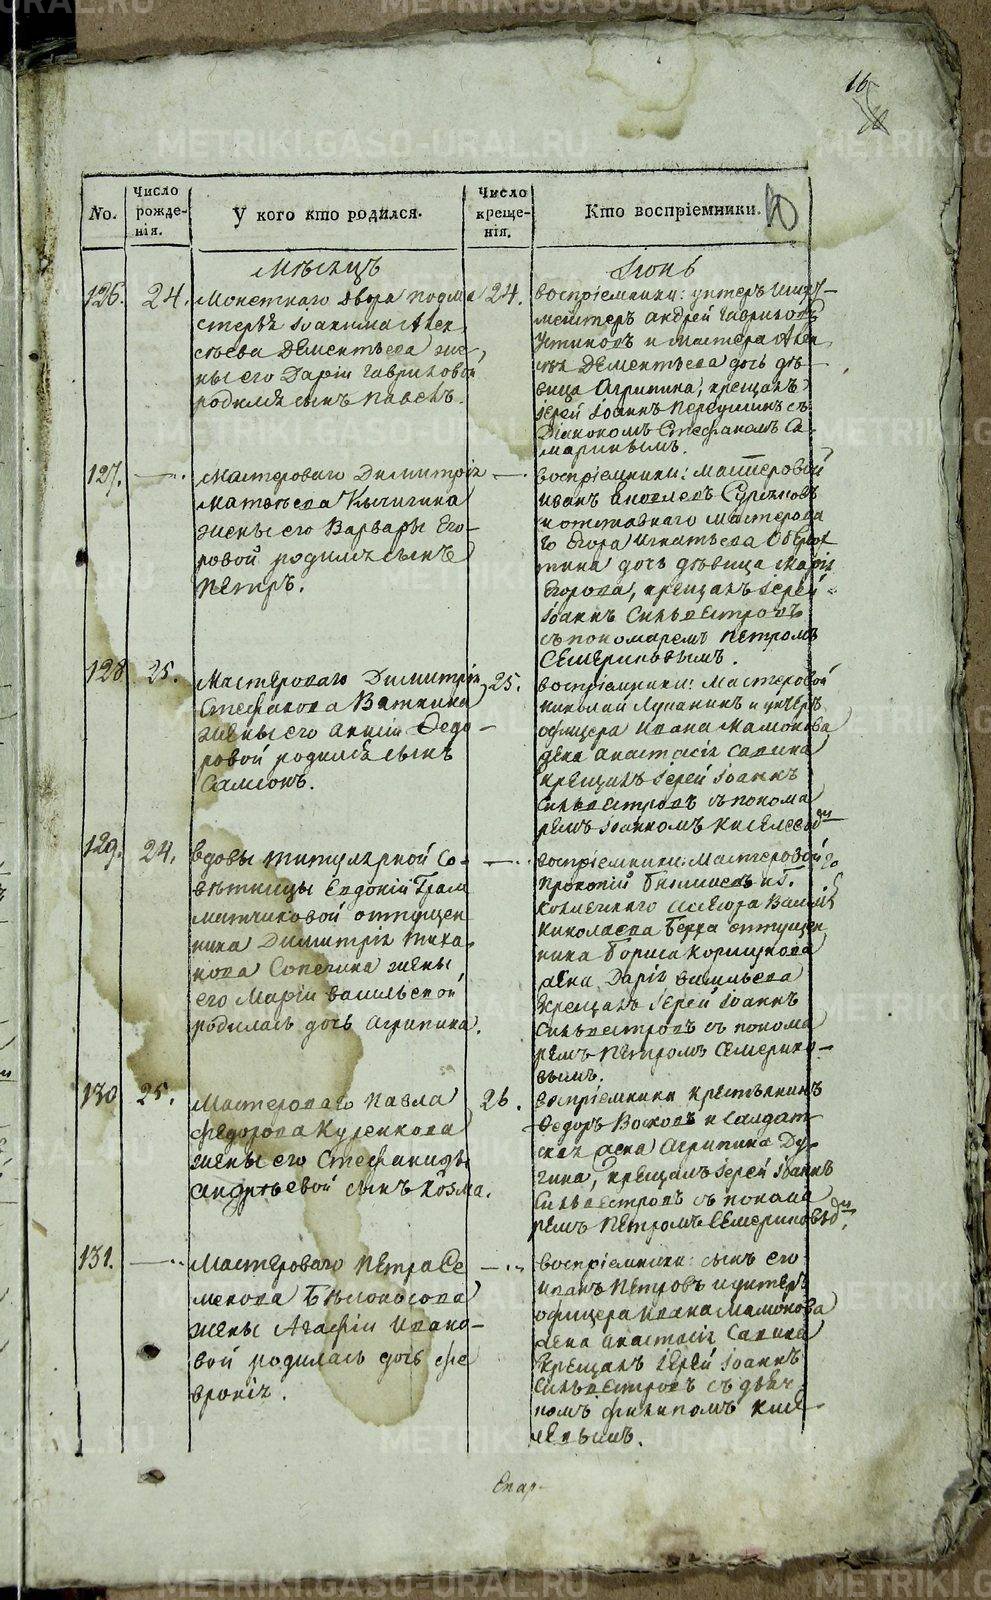 16
No.
Число рожде- нія.
У кого кто родился.
Число креще- нія.
Кто воспріемники.
Мѣсяцъ
Іюнь
126.
24.
Монетнаго двора подма
стерья Іоакима Алек
сѣева Дементьева же,
ны его Даріи Гавриловой
родился сынъ Павелъ.
24.
воспріемники: унтеръ Шихт
мейстеръ Андрей Гавриловъ
Устиновъ и мастера Алек
сѣя Дементьева дочь дѣ
вица Агрипина, крещалъ
іерей Іоаннъ
Діакономъ Стефаномъ Са
маринымъ.
127.
Мастероваго Димитрія
Матвѣева Кичигина
жены его Варвары Его-
ровой родился сынъ
Петръ.
воспріемники: мастеровой
иванъ Яковлевъ
и отставнаго мастерова
го Егора Игнатьева
дочь дѣвица Марія
Егорова, крещалъ іерей
Іоаннъ Сильвестровъ
съ пономаремъ Петромъ
Семериковымъ.
128
25.
Мастероваго Димитрія
Стефанова Вяткина
жены его Анны Ѳедо-
ровой родился сынъ
Самсонъ.
25.
воспріемники: Мастеровой
николай Лупанинъ и унтеръ
офицера ивана мамонова
жена анастасія савина
крещалъ іерей Іоаннъ
Сильвестровъ съ понома
ремъ Іоанномъ
129.
24.
вдовы титулярной Со-
вѣтницы Евдокіи Грам
матчиковой отпущен
ника Димитрія Тиха
нова Сопегина жены
его Маріи васильевой
родилась дочь агрипина.
воспріемники: мастеровой
прокопій и Г.
ассесора Василія
николаева Берха отпущен
ника Бориса
жена Дарія васильева
крещалъ Іерей Іоаннъ
Сильвестровъ съ понома
ремъ Петромъ Семерико-
вымъ.
130
25.
Мастероваго павла
федорова Куренкова
жены его Стефаниды
андрѣевой сынъ Козма.
26.
воспріемники крестьянинъ
Ѳедоръ и салдат
ская жена Агрипина Ду
гина, крещалъ Іерей Іоаннъ
Сильвестровъ съ понома
ремъ Петромъ Семериковымъ.
131.
Мастероваго петра Се
менова Бѣлоносова
жены Агафіи ивано-
вой родилась дочь фе
вронія.
воспріемники: сынъ его
иванъ петровъ и унтеръ
офицера ивана мамонова
жена анастасія Савина
крещалъ іерей Іоаннъ
Сильвестровъ съ дьяч
комъ филипомъ Кисе
левымъ.
METRIKI.GASO-URAL.RU